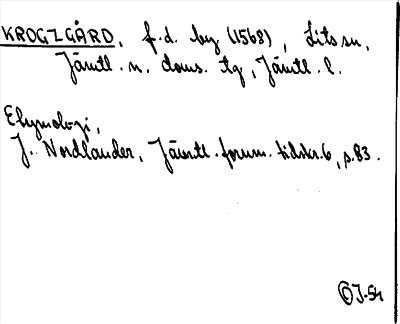 KROGZGÅRD, f.d. by (1568), Lits sn,
Jämtl. n. doms. tg, Jämtl. l.
Etymologi,
J. Nordlander, Jämtl. forum. tidskr. 6, s. 83.